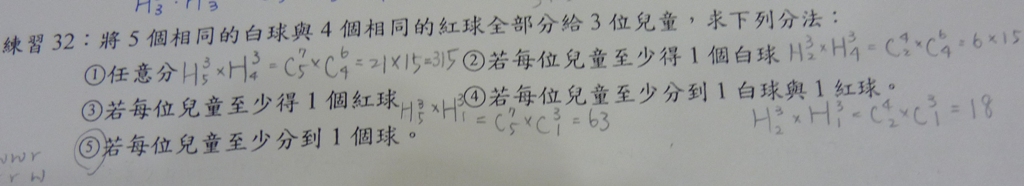 H₃ · H₃
練習 32：將 5 個相同的白球與 4 個相同的紅球全部分給 3 位兒童，求下列分法：
①任意分 H³₅ × H³₄ = C⁷₅ × C⁶₄ = 21×15=315 ②若每位兒童至少得 1 個白球 H³₂ × H³₄ = C⁴₂ × C⁶₄ = 6×15
③若每位兒童至少得 1 個紅球 H³₅ × H³₁ = C⁷₅ × C³₁ = 63 ④若每位兒童至少分到 1 白球與 1 紅球。 H³₂ × H³₁ = C⁴₂ × C³₁ = 18
⑤若每位兒童至少分到 1 個球。
wr
r w